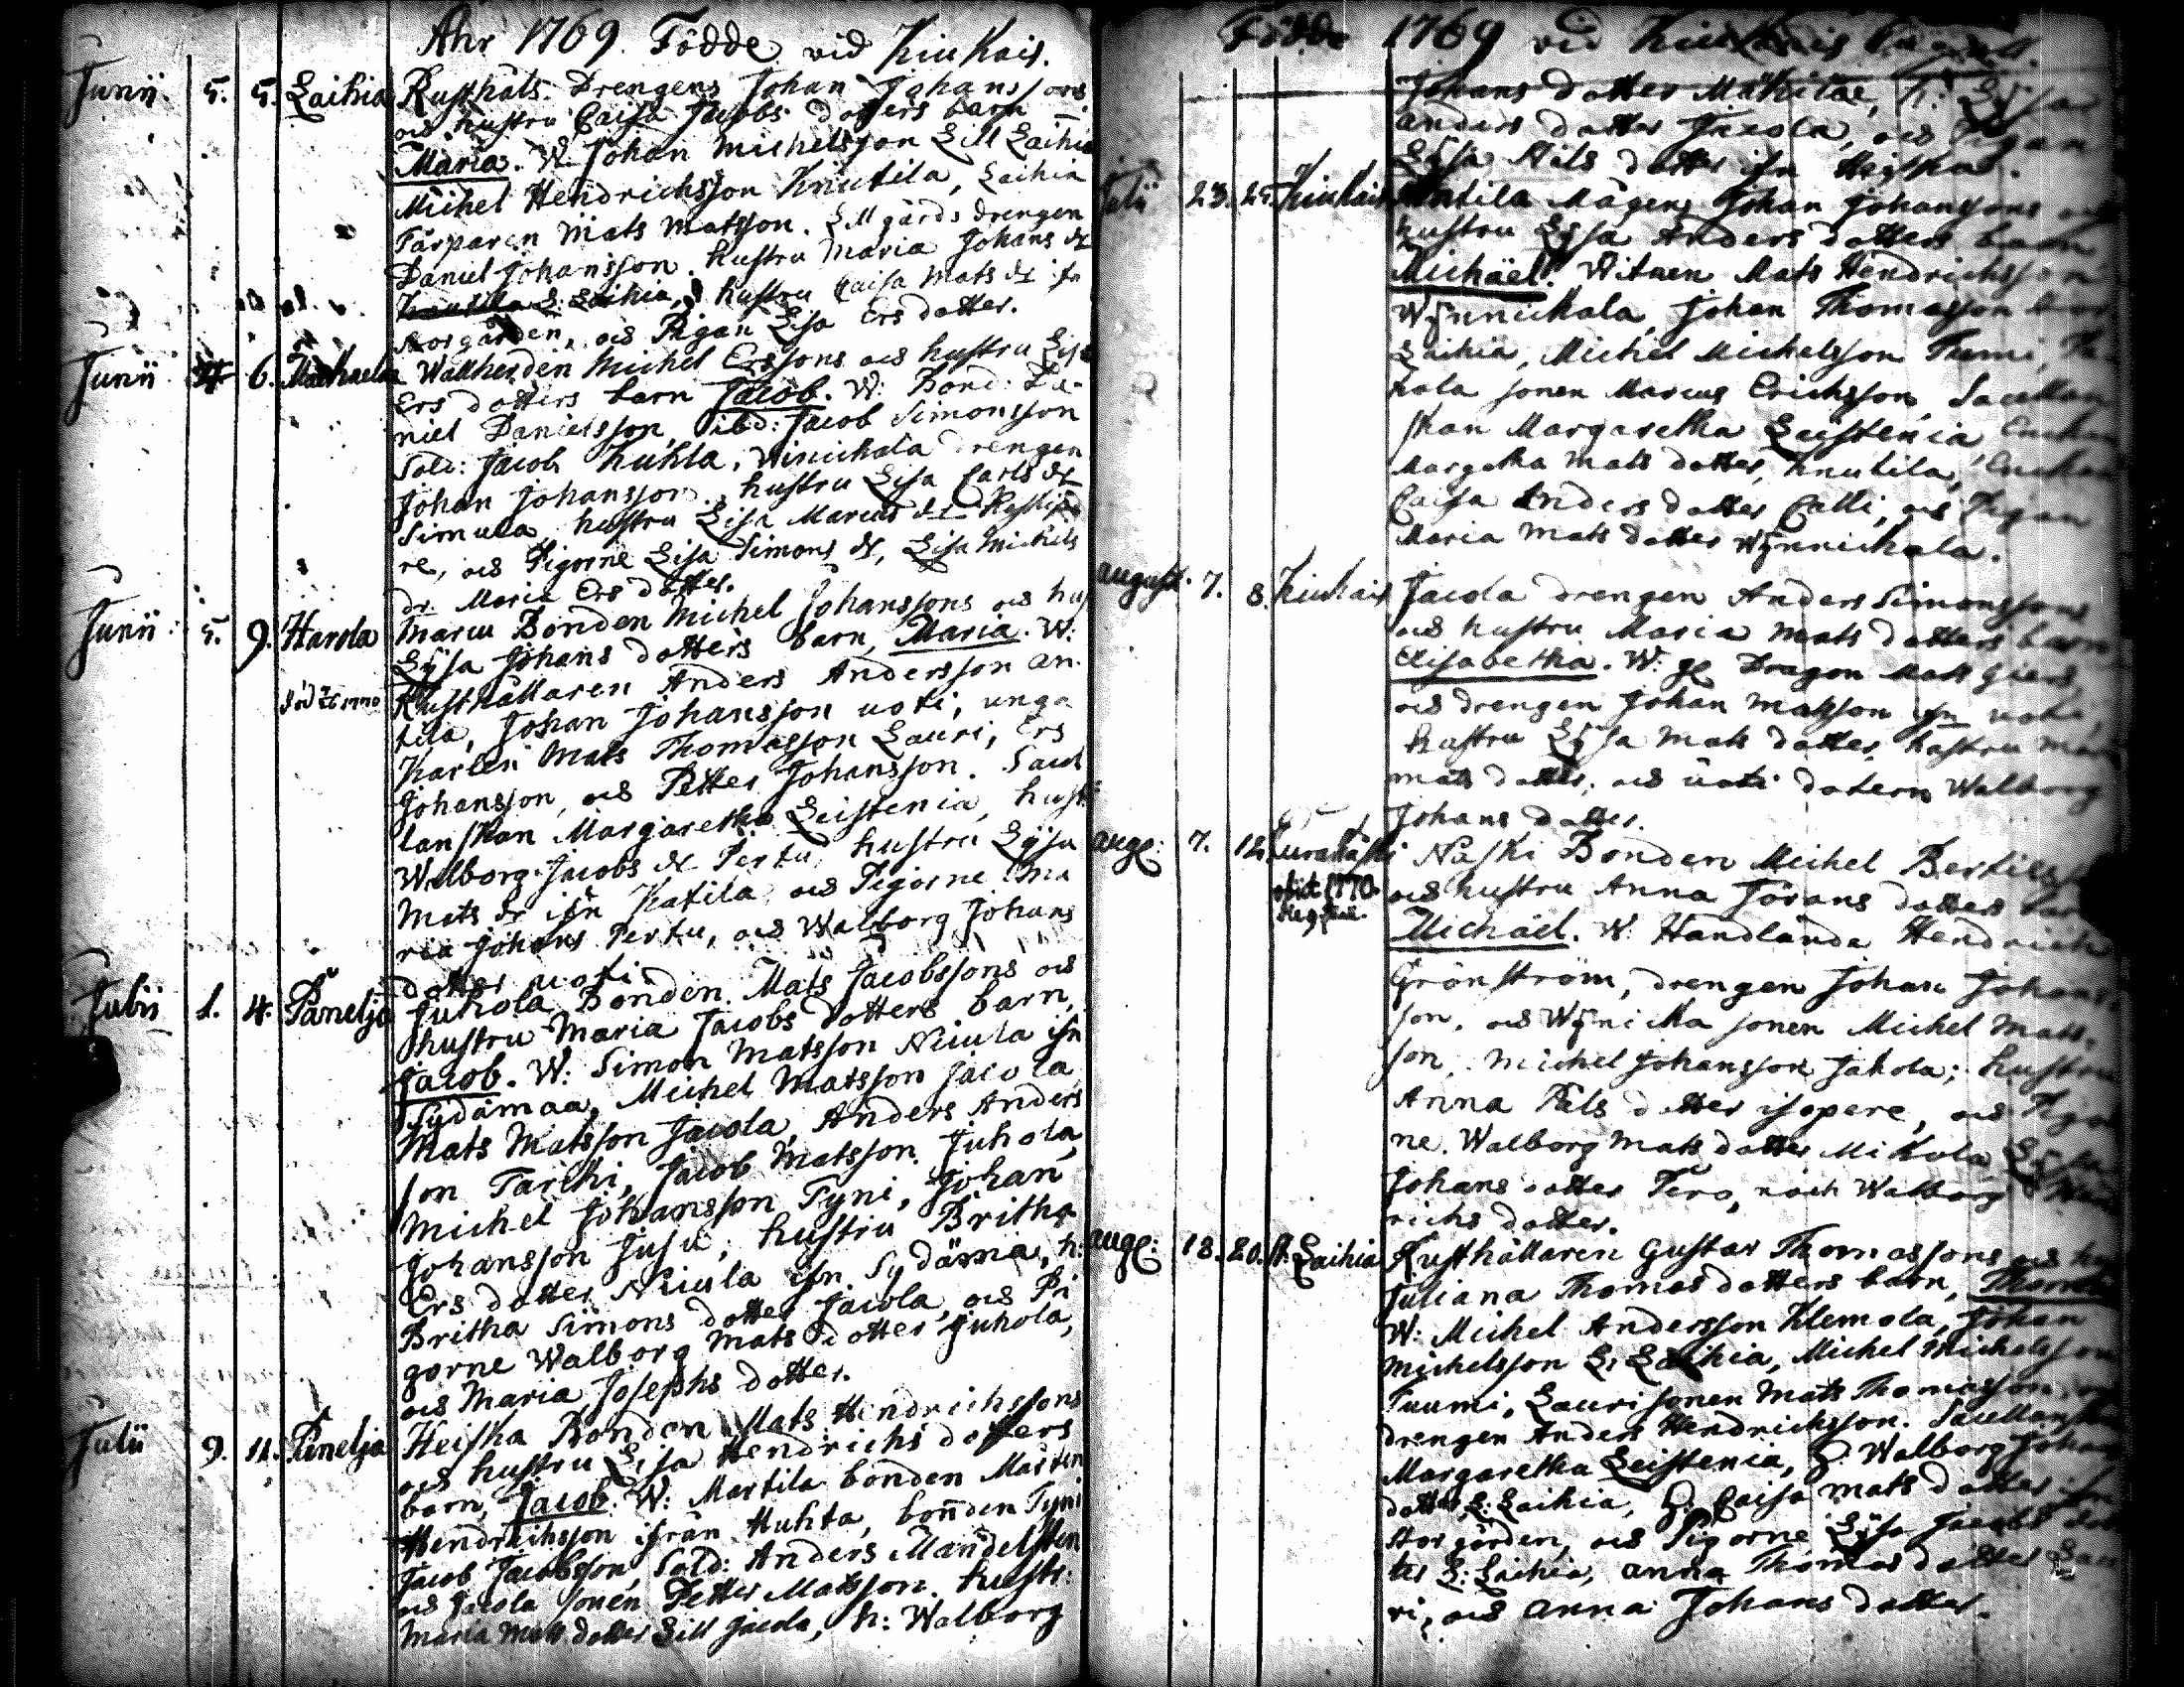 Åhr 1769. Födde vid Kiukais.
Junii. 5. 5. Laihia Rusthåls Drengens Johan Johanssons
och hustru Caisa Jacobs dotters barn
Maria. W. Johan Michelsson Lill Laihia
Michel Hendrichsson Knutila, Laihia
Torparen Mats Matsson. Lillgårds drengen
Daniel Johansson. hustru Maria Johans dr
L: Laihia, hustru Caisa Mats dr ifn
Storgården, och Pigan Lisa Ers dotter.
Junii 6. Wallherden Michel Erssons och hustru Lisa
Ers dotters barn Jacob. W: Bond: Da-
niel Danielsson, ibd: Jacob Simonsson
Sold: Jacob Kuhla, Winickala drengen
Johan Johansson. hustru Lisa Carls dr
Simula, hustru Lisa Marcus dr
re, och Pigorne Lisa Simons dr, Lisa Michels
dr Maria Ers dotter.
Junii. 5. 9. Harola Marcu Bonden Michel Johanssons och hus
Lÿsa Johans dotters barn, Maria. W:
Rusthållaren Anders Andersson an-
tila, Johan Johansson uoti, unga
Karlen Mats Thomasson Lauri, Ers
Johansson, och Petter Johansson. Sacel
lanskan Margaretha Leistenia, hust
Walborg Jacobs dr Pertu, hustru Lÿsa
Mats dr ifn Katila, och Pigorne Ma
ria Johans Pertu, och Walborg Johans
dotter uoti
Julii 1. 4. Panelja Juhola Bonden Mats Jacobssons och
hustru Maria Jacobs dotters barn,
Jacob. W: Simon Matsson Niuula ifn
Sydämaa, Michel Matsson Jacola
Mats Matsson Jacola, Anders Anders
son Tarcki, Jacob Matsson Juhola,
Michel Johansson Tyni, Johan
Johansson Jusu; hustru Britha
Ers dotter Niuula ifn Sydämia, h:
Britha Simons dotter Jacola, och Pi
gorne Walborg Mats dotter Juhola,
och Maria Josephs dotter.
Julii 9. 11. Panelja Heiska Bonden Mats Hendrichssons
och hustru Lisa Hendrichs dotters
barn, Jacob. W: Martila bonden Mårten
Hendrichsson ifrån Huhta, bonden Tyni
Jacob Jacobsson, Sold: Anders Mandelsten
och Jacola sonen Petter Matsson. hustr:
Maria Mats dotter Lill Jacola, h: Walborg
Födde 1769 vid Kiukais
Johans dotter Mätkilae, h: Lÿsa
anders dotter Jacola, och Pigan
Lÿsa Nils dotter ifn Heiska.
Julii 23. 25. Kiukais Mågens Johan Johanssons och
hustru Lÿsa Anders dotters barn
Michaël. Witnen Mats Hendrichsson
Wÿnnickala, Johan Thomasson
Laihia, Michel Michelsson Tumi,
kola sonen Marcus Erichsson, Sacellan
skan Margaretha Leistenia, Enckan
Margetha Mats dotter, Knutila, Enckan
Caisa Anders dotter Calli, och Pigan
Maria Mats dotter Wÿnnickala.
august. 7. 8. Kiukais Jacola drengen Anders Simonssons
och hustru Maria Mats dotters barn
Elisabetha. W: Dragon Mats
och drengen Johan Matsson ifn uoti,
hustru Lÿsa Mats dotter, hustru
Mats dotter, och uoti dotern Walborg
Johans dotter.
aug: 7. 12. Naski Bonden Michel Bertils
obiit 1770. och hustru Anna Jörans dotters barn
Michaël. W: Handlande Hendrich
Grönström, drengen Johan Johans-
son, och Wÿnicka sonen Michel Mats-
son, Michel Johansson Jakola; hustru
Anna Påls dotter isopere, och Pigor
ne Walborg Mats dotter Mikola, Lÿsa
Johans dotter Tero, och Walborg Hend
richs dotter.
aug: 18. 20. Laihia Rusthållaren Gustav Thomassons och hu
Juliana Thomas dotters barn, Thomas
W: Michel Andersson Klemola, Johan
Michelsson L: Laihia, Michel Michelsson
Tuumi, Lauri sonen Mats Thomasson
drengen Anders Hendrichsson. Sacellanskan
Margaretha Leistenia, h. Walborg Johans
dotter L: Laihia, h. Caisa Mats dotter ifn
Storgården, och Pigorne Lÿsa Jacobs dot
ter L: Laihia, anna Thomas dotter Lau
ri, och anna Johans dotter.